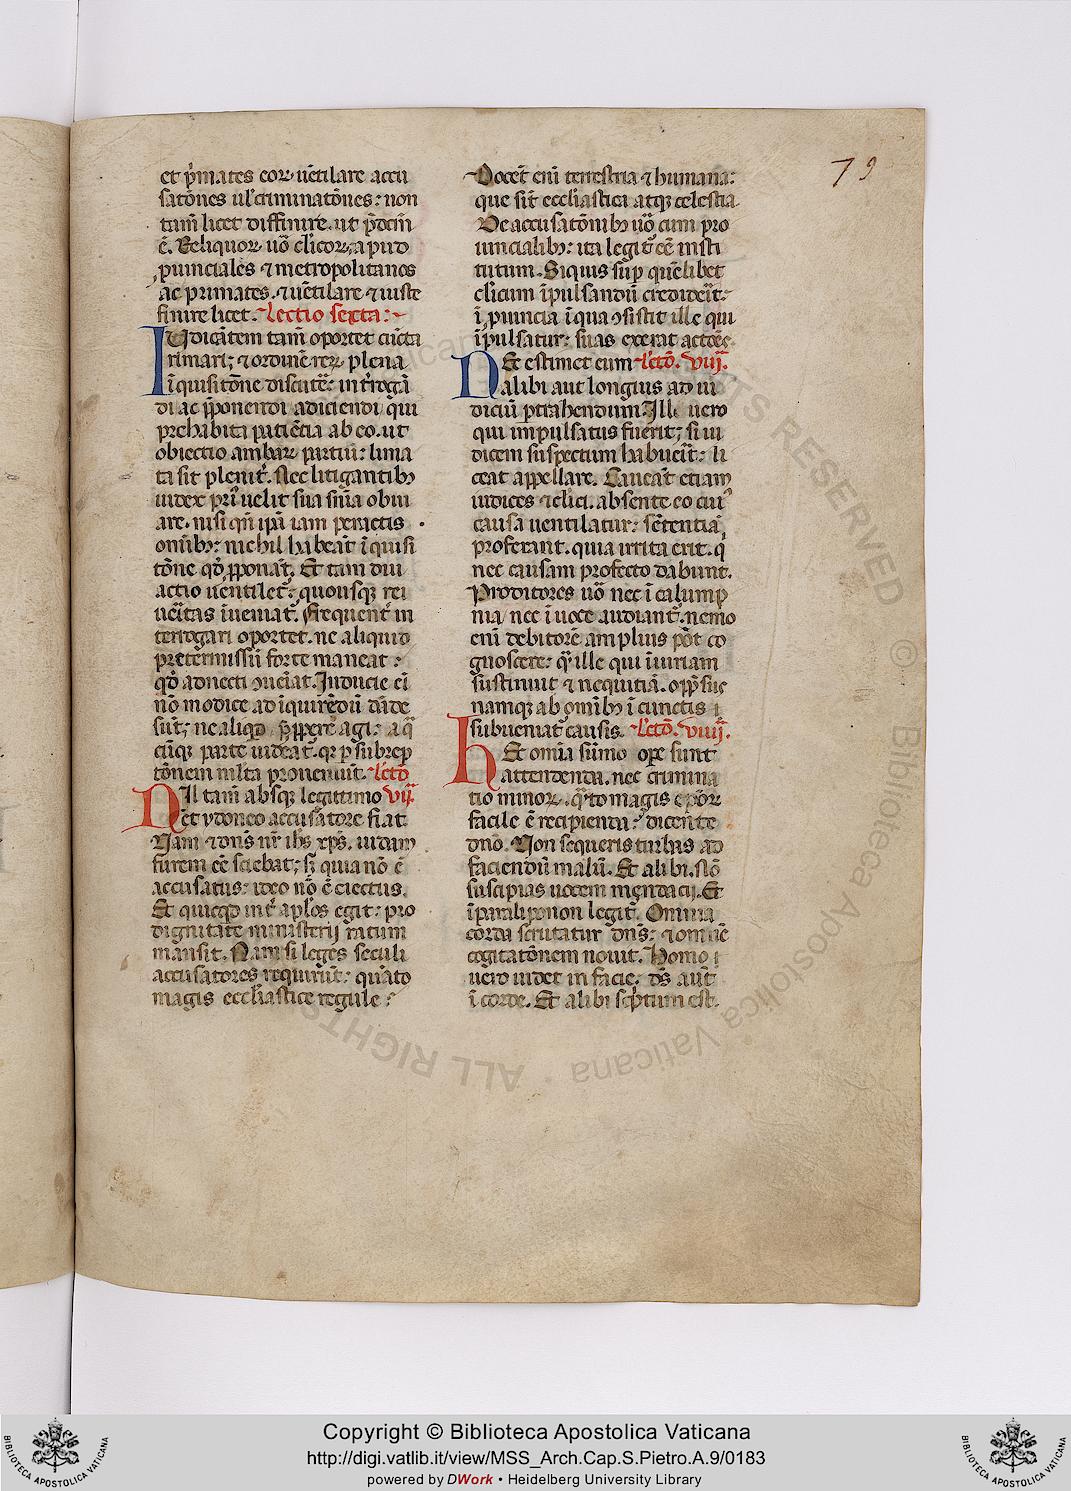 79
et p̄mates eoꝝ uētilare accu
satōnes ul' criminatōnes: non
tam̄ licet diffinire. ut p̄dcm̄
ē. Reliquoꝝ uō cl̄icoꝝ apud
puinciales ⁊ metropolitanos
ac primates. ⁊ uētilare ⁊ iuste
finire licet. Lectio sexta:
Iudicātem tam̄ oportet cūcta
rimari; ⁊ ordinē reꝝ plena
īquisitōne discutē: int̄rogā
di ac p̄ponendi adiciendi q̄ui
prehabita patiētia ab eo. ut
obiectio ambaꝝ partiū: lima
ta sit plenit̄. Nec litigantibꝰ
iudex pri' uelit sua sn̄ia obui
are. nisi qn̄ ip̄i iam peractis
omībꝰ: nichil habeāt ī quisi
tōne qd̄ ꝓponāt. Et tam diu
actio uentilet̄: quousqꝫ rei
ueritas īueniat̄. Frequent̄ in
terrogari oportet. ne aliquid
pretermissū forte maneat:
qd̄ adnecti ꝯueiat. Inducie ei
nō modice ad īquirēdū dāde
sūt; ne aliqd p̄ppere agi a q̄
cūqꝫ parte uideat̄. qꝛ p̄ subrep
tōnem ml̄ta proueniūt. Lectō
Nil tam̄ absqꝫ legittimo vijᵃ.
⁊ et ydoneo accusatore fiat
Nam ⁊ dn̄s nr̄ ih̄s xp̄s. iudam
furem eē sciebat; sꝫ quia nō ē
accusatus: ideo nō ē eiectus.
Et quicqd int̄ apl'os egit: pro
dignitate ministerij ratum
mansit. Nam si leges seculi
accusatores requirūt: quāto
magis eccl̄iastice regule:
Docet eni terrestria ⁊ humana:
que sūt eccl̄iastica atqꝫ celestia
De accusatōnibꝰ uō cum pro
uincialibꝰ: ita legit̄ eē insti
titutum. Siquis sup quēlibet
cl̄icum īpulsandū credideīt:
ī puincia ī qua ꝯsistit ille qui
īpulsatur: suas exerat actōes
Nec estimet eum Lectō. viijᵃ.
alibi aut longius ad iu
diciū ptrahendum. Illi uero
qui impulsatus fuerit; si iu
dicem suspectum habueīt: li
ceat appellare. Caueāt etiam
iudices ⁊ cl̄ici. absente eo cui'
causa uentilatur: sētentiā
proferant. quia irrita erit. q̄
nec causam profecto dabunt.
Proditores uō nec ī calump
nia nec ī uoce audiant̄. nemo
eni debitorē amplius pōt co
gnoscere: q̄ ille qui īiuriam
sustinuit ⁊ nequitiā. opp̄sue
namqꝫ ab omībꝰ ī cunctis
subueniat̄ causis. Lectō. viiijᵃ.
Hec et omīa sūmo opē sunt
attendenda. nec crimina
tio minoꝝ. q̄to magis epōꝝ
facile ē recipienda: dicente
dnō. Non sequeris turbas ad
faciendū malū. Et alibi. Nō
suscipias uocem mendacij. Et
ī paraliponon legit̄. Omnia
corda scrutatur dn̄s: ⁊ om̄ē
cogitatōnem nouit. Homo
uero uidet in facie: ds̄ aut̄
ī corde. Et alibi sc̄ptum est.
Copyright © Biblioteca Apostolica Vaticana
http://digi.vatlib.it/view/MSS_Arch.Cap.S.Pietro.A.9/0183
powered by DWork • Heidelberg University Library